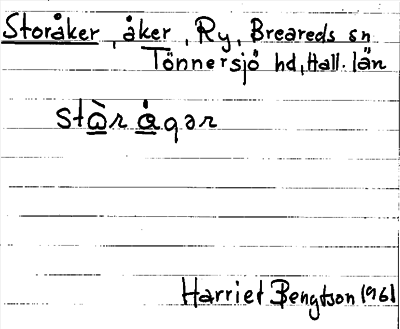 Storåker, åker, Ry, Breareds sn
Tönnersjö hd, Hall. län
stὼ̲r å̲gər
Harriet Bengtson 1961